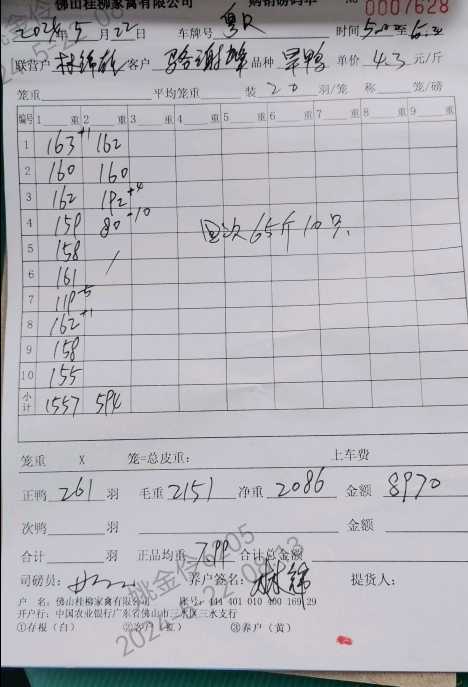 佛山桂柳家禽有限公司 购销磅码单 № 0007628
2024年5月22日 车牌号 粤R 时间5:00至6:20
联营户 客户 品种 旱鸭 单价 4.3 元/斤
笼重 平均笼重 装 20 羽/笼 称 笼/磅
编号 1 重 2 重 3 重 4 重 5 重 6 重 7 重 8 重 9 重
1 163+1 162
2 160 160
3 162 192+4
4 159 80-10 回次65斤10只
5 158 /
6 161
7 119-5
8 162+1
9 158
10 155
小计 1557 594
笼重 X 笼=总皮重: 上车费
正鸭 261 羽 毛重 2151 净重 2086 金额 8970
次鸭 羽 金额
合计 羽 正品均重 7.99 合计总金额
司磅员: 养户签名: 提货人:
户 名: 佛山桂柳家禽有限公司 账号: 444 401 010 400 169 29
开户行: 中国农业银行广东省佛山市三水区三水支行
①存根（白） ②客户（红） ③养户（黄）
姚金伶 6205